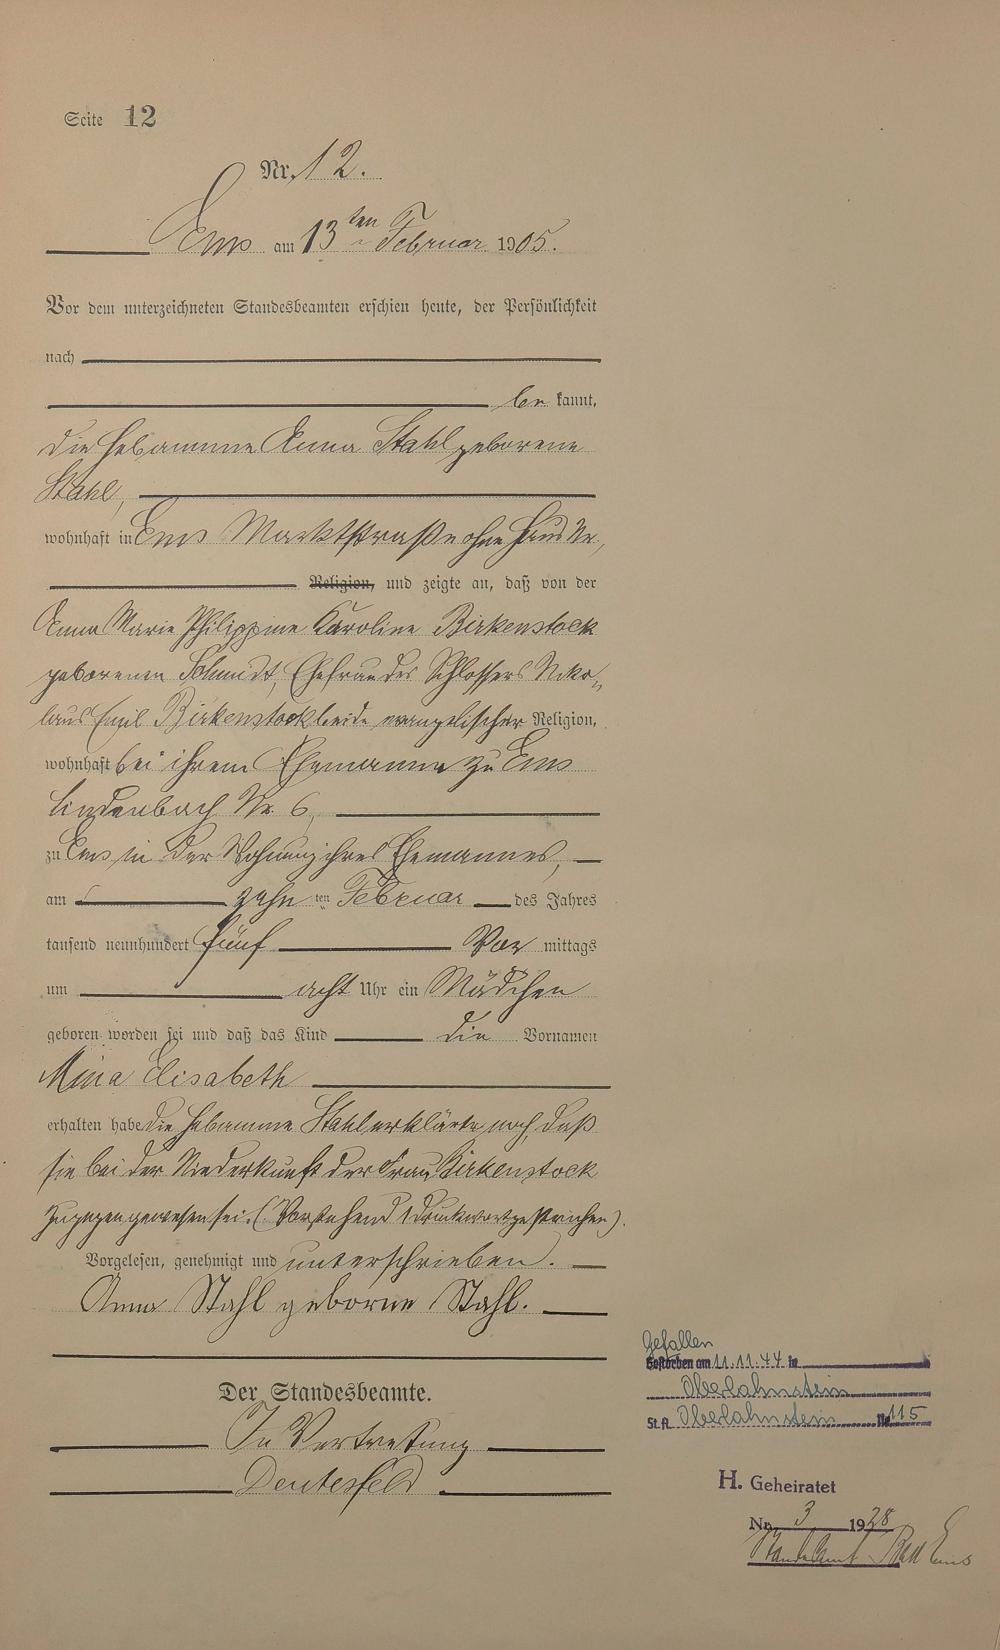 Seite 12
Nr. 12.
Ems am 13ten Februar 1905.
Vor dem unterzeichneten Standesbeamten erschien heute, der Persönlichkeit
nach
be kannt,
die Hebamme Anna Stahl geborene
Stahl,
wohnhaft in Ems Marktstraße ohne Haus Nr,
Religion, und zeigte an, daß von der
Anna Marie Philippine Karoline Birkenstock
geborenen Schmidt, Ehefrau des Schlossers Niko-
laus Emil Birkenstock beide evangelischer Religion,
wohnhaft bei ihrem Ehemanne zu Ems
Lindenbach Nr. 6,
zu Ems in der Wohnung ihres Ehemannes,
am zehn ten Februar des Jahres
tausend neunhundert fünf Vor mittags
um acht Uhr ein Mädchen
geboren worden sei und daß das Kind die Vornamen
Mina Elisabeth
erhalten habe die Hebamme Stahl erklärte noch, daß
sie bei der Niederkunft der Frau Birkenstock
zugegen gewesen sei. (Vorstehend 1 Druckwort gestrichen).
Vorgelesen, genehmigt und unterschrieben.
Anna Stahl geborne Stahl.
Der Standesbeamte.
In Vertretung
Deutesfeld
Gefallen
Gestorben am 11.11.44 in
Oberlahnstein
St.A. Oberlahnstein No 115
H. Geheiratet
Nr. 3 1928
Standesamt Bad Ems